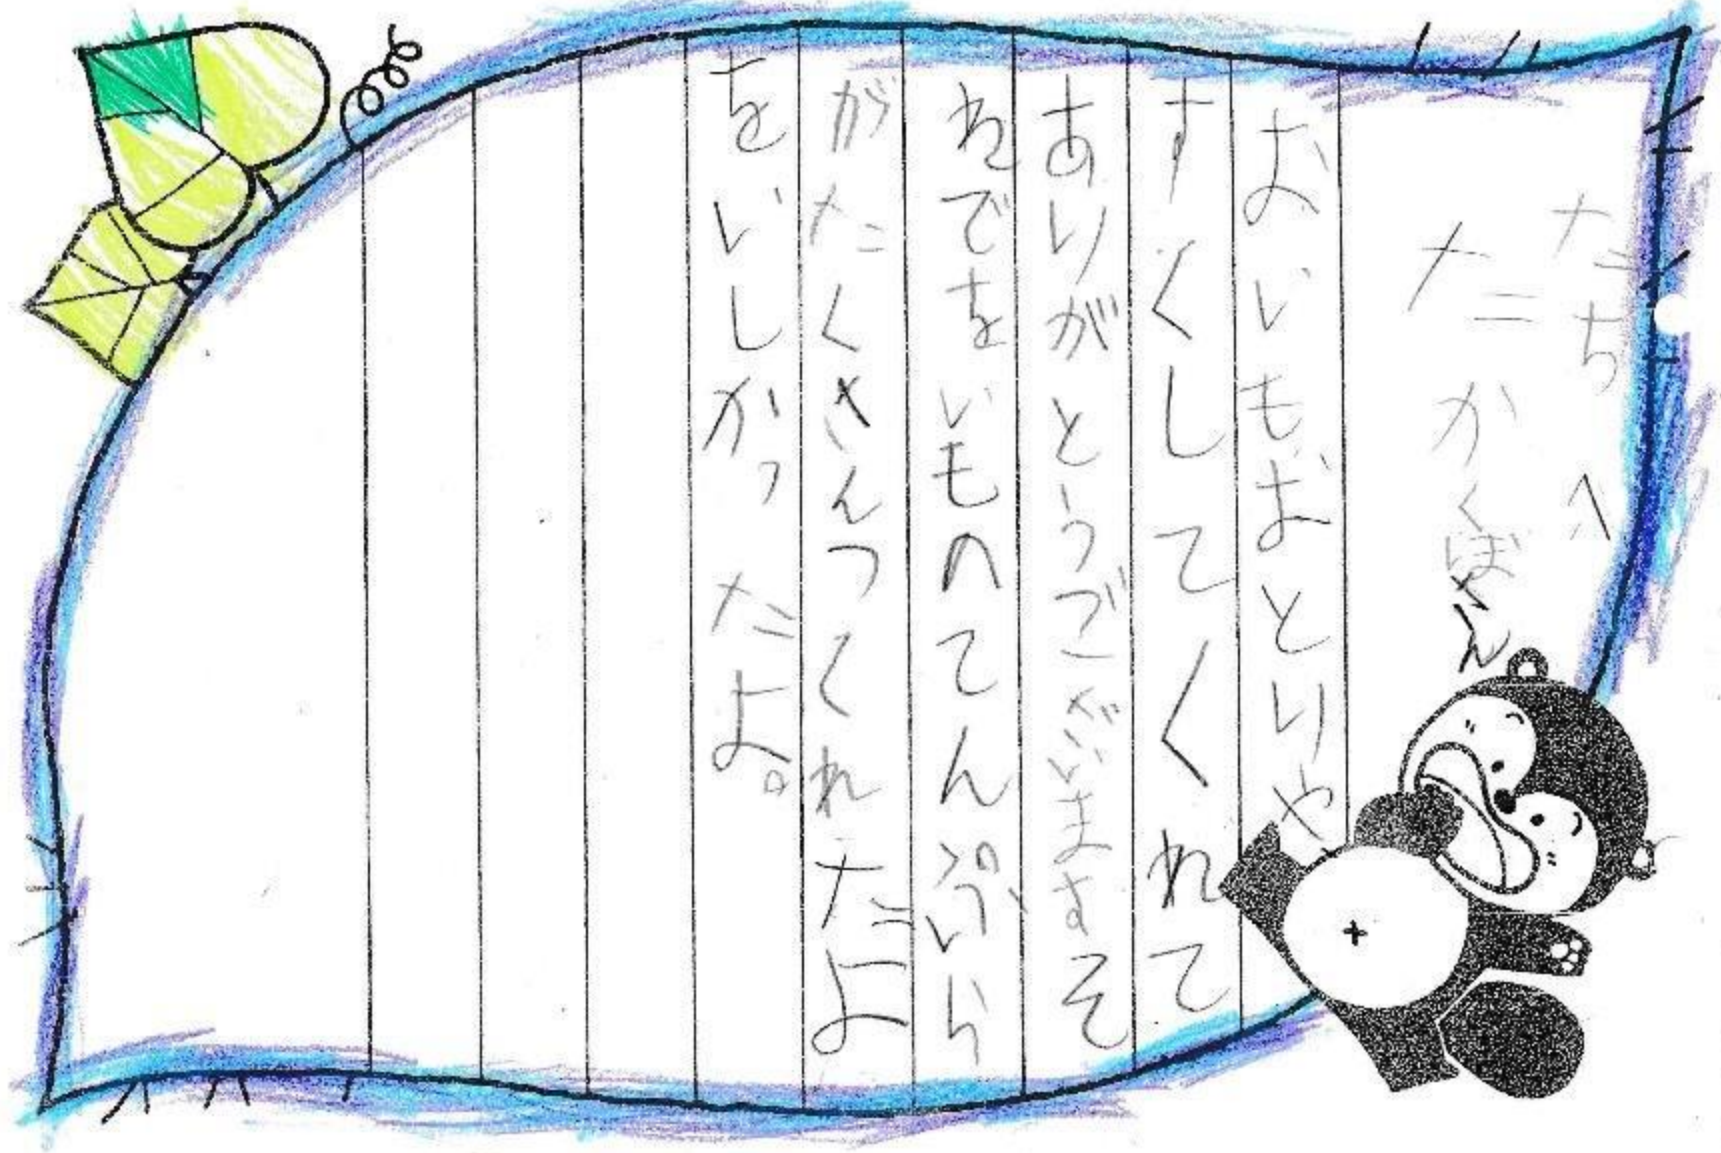 たちへ
たかくぼさん
おいもおとりや
すくしてくれて
ありがとうございますそ
れでをいものてんぷら
がたくさんつくれたよ
をいしかったよ。